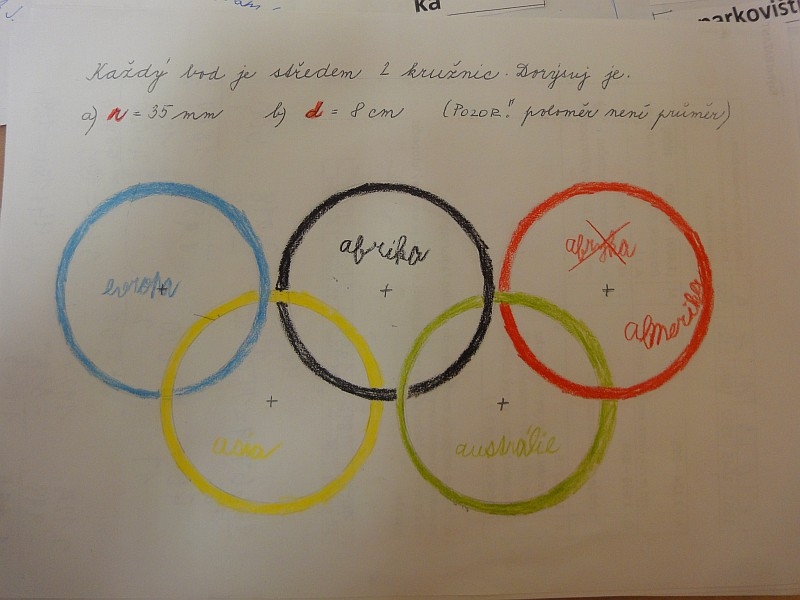 ka
parkovišt
Každý bod je středem 2 kružnic. Dorýsuj je.
a) r = 35 mm b) d = 8 cm (POZOR!! poloměr není průměr)
afrika
afryka
evropa
almerika
asia
austrálie